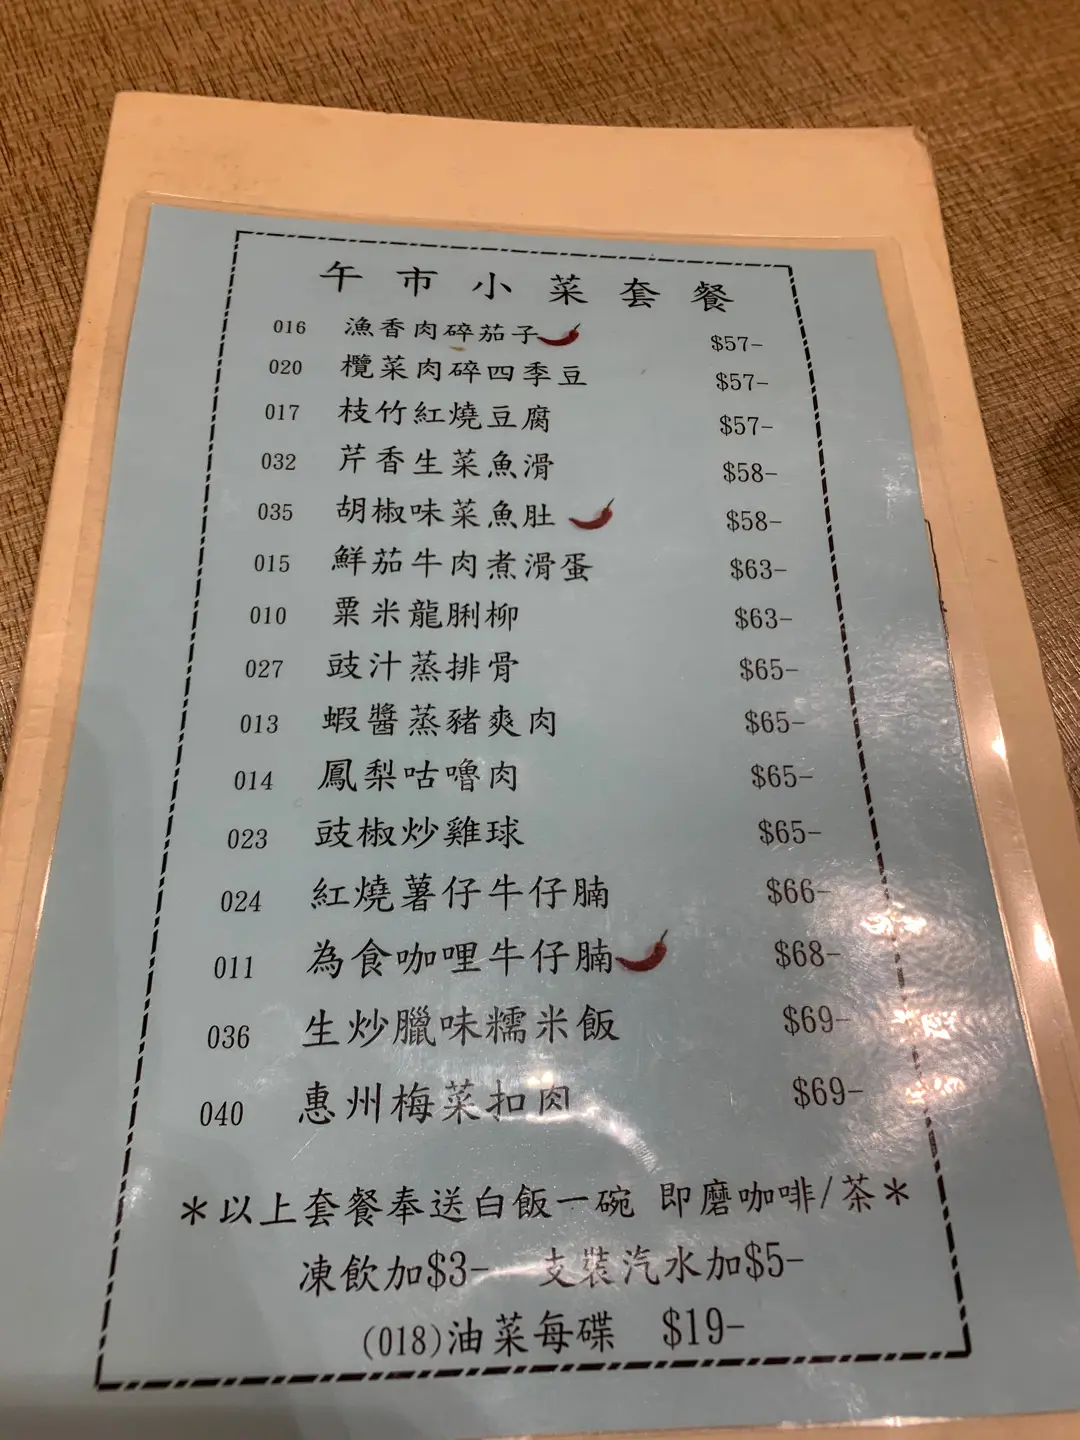 午市小菜套餐
016 漁香肉碎茄子 $57-
020 欖菜肉碎四季豆 $57-
017 枝竹紅燒豆腐 $57-
032 芹香生菜魚滑 $58-
035 胡椒味菜魚肚 $58-
015 鮮茄牛肉煮滑蛋 $63-
010 粟米龍脷柳 $63-
027 豉汁蒸排骨 $65-
013 蝦醬蒸豬爽肉 $65-
014 鳳梨咕嚕肉 $65-
023 豉椒炒雞球 $65-
024 紅燒薯仔牛仔腩 $66-
011 為食咖哩牛仔腩 $68-
036 生炒臘味糯米飯 $69-
040 惠州梅菜扣肉 $69-
＊以上套餐奉送白飯一碗 即磨咖啡/茶＊
凍飲加$3- 支裝汽水加$5-
(018)油菜每碟 $19-